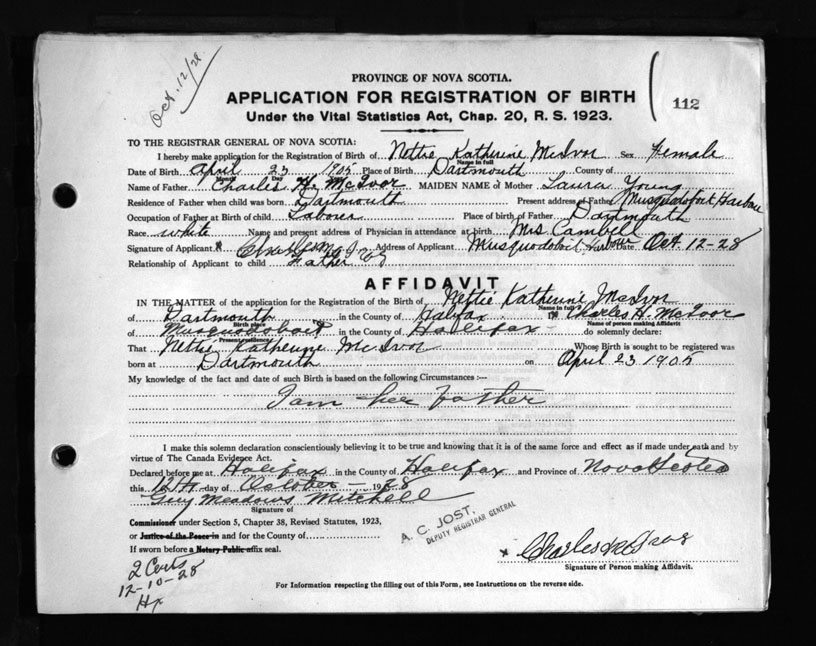 Oct. 12/28
PROVINCE OF NOVA SCOTIA.
112
APPLICATION FOR REGISTRATION OF BIRTH
Under the Vital Statistics Act, Chap. 20, R. S. 1923.
TO THE REGISTRAR GENERAL OF NOVA SCOTIA:
I hereby make application for the Registration of Birth of Nettie Katherine McIvor Sex Female
Name in full
Date of Birth April 23 1905 Place of Birth Dartmouth County of
Month Day
Name of Father Charles H. McIvor MAIDEN NAME of Mother Laura Young
Residence of Father when child was born Dartmouth Present address of Father Musquodoboit Harbour
Occupation of Father at Birth of child Laborer Place of birth of Father Dartmouth
Race white Name and present address of Physician in attendance at birth Mrs Cambell
Signature of Applicant x Charles McIvor Address of Applicant Musquodoboit Harbour Date Oct. 12-28
Relationship of Applicant to child Father
AFFIDAVIT
IN THE MATTER of the application for the Registration of the Birth of Nettie Katherine McIvor
Name in full
of Dartmouth in the County of Halifax I, Charles H. McIvor
Birth place Name of person making Affidavit
of Musquodoboit in the County of Halifax do solemnly declare:
Present residence
That Nettie Katherine McIvor Whose Birth is sought to be registered was
born at Dartmouth on April 23 1905
My knowledge of the fact and date of such Birth is based on the following Circumstances :—
I am her Father
I make this solemn declaration conscientiously believing it to be true and knowing that it is of the same force and effect as if made under oath and by
virtue of The Canada Evidence Act.
Declared before me at Halifax in the County of Halifax and Province of Nova Scotia
this 12th day of October 1928
Guy Meadows Mitchell
Signature of
Commissioner under Section 5, Chapter 38, Revised Statutes, 1923,
or Justice of the Peace in and for the County of
If sworn before a Notary Public affix seal.
A. C. JOST,
DEPUTY REGISTRAR GENERAL
x Charles McIvor
Signature of Person making Affidavit.
2 Certs
12-10-28
Hx
For Information respecting the filling out of this Form, see Instructions on the reverse side.